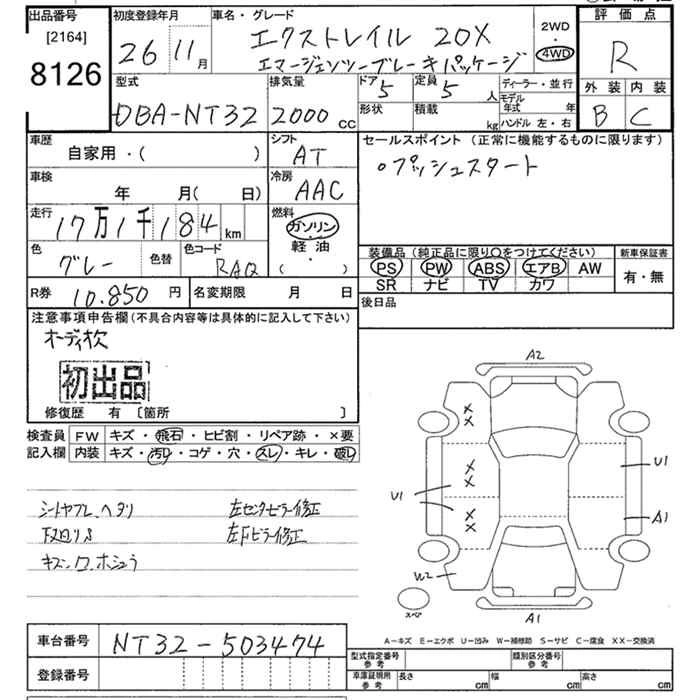 出品番号
[2164]
8126
初度登録年月
26 11月
車名・グレード
エクストレイル 20X
エマージェンシーブレーキパッケージ
2WD
・
4WD
評価点
R
外装 内装
B C
型式
DBA-NT32
排気量
2000 cc
ドア 5
定員 5 人
形状
積載 kg
ディーラー・並行
モデル年式 年
ハンドル 左・右
車歴
自家用・( )
シフト
AT
車検
年 月( 日)
冷房
AAC
走行
17万1千184 km
燃料
ガソリン
・
軽油
( ・ )
色
グレー
色替
色コード
RAQ
R券 10.850 円
名変期限 月 日
セールスポイント (正常に機能するものに限ります)
○プッシュスタート
装備品 (純正品に限り〇をつけてください)
PS PW ABS エアB AW
SR ナビ TV カワ
新車保証書
有・無
後日品
注意事項申告欄(不具合内容等は具体的に記入して下さい)
オーディオ欠
初出品
修復歴 有 [箇所 ]
検査員記入欄
FW キズ・飛石・ヒビ割・リペア跡・×要
内装 キズ・汚レ・コゲ・穴・スレ・キレ・破レ
シートヤブレ、ヘタリ
左センターピラー修正
左Fピラー修正
A2
X
X
X
X
X
X
U1
U1
A1
W2
スペア
A1
A-キズ E-エクボ U-凹み W-補修跡 S-サビ C-腐食 XX-交換済
車台番号 NT32-503474
登録番号
型式指定番号 参考
類別区分番号 参考
車庫証明用 参考
長さ cm
幅 cm
高さ cm